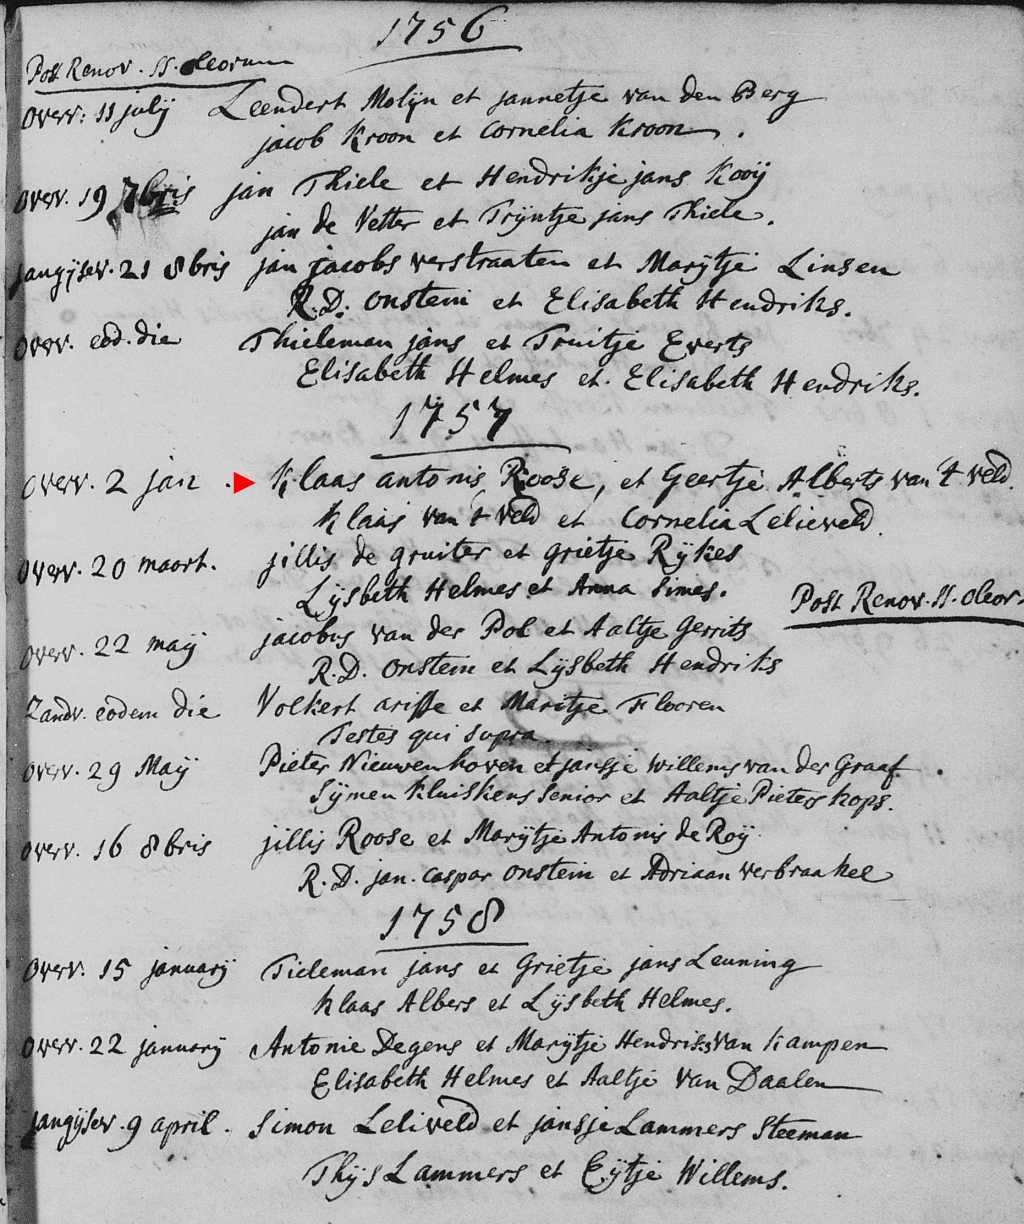 1756
Post Renov. SS. oleorum
overv: 11 julÿ Leendert Molÿn et jannetje van den Berg
jacob Kroon et Cornelia Kroon.
overv. 19 7bris jan Thiele et Hendrikje jans Kooÿ
jan de Vetter et Trÿntje jans Thiele.
jangÿsev. 21 8bris jan jacobs verstraaten et Marÿtje Linsen
R.D. onstein et Elisabeth Hendriks.
overv. eod. die Thieleman jans et Truitje Everts
Elisabeth Helmes et. Elisabeth Hendriks.
1757
overv. 2 jan. Klaas antonis Roose, et Geertje Alberts van 't veld
Klaas van 't veld et Cornelia Lelieveld.
overv. 20 maart. jillis de gruiter et grietje Rÿkes
Lÿsbeth Helmes et Anna Simes.
Post Renov. SS. oleor.
overv. 22 maÿ jacobus van der Pol et Aaltje Gerrits
R.D. onstein et Lÿsbeth Hendriks
Zandv. eodem die Volkert arisse et Maritje Flooren
Testes qui supra.
overv. 29 Maÿ Pieter Nieuwenhoven et jansje willems van der Graaf.
Sÿmen Kluiskens Senior et Aaltje Pieters kops.
overv. 16 8bris jillis Roose et Marÿtje Antonis de Roÿ
R.D. jan. Caspar onstein et Adriaan verbraakel
1758
overv. 15 januarÿ Tieleman jans et Grietje jans Leuning
Klaas Albers et Lÿsbeth Helmes.
overv. 22 januarÿ Antonie Degens et Marÿtje Hendriks van Kampen
Elisabeth Helmes et Aaltje van Daalen
jangÿsev. 9 april. Simon Leliveld et jansje Lammers Steeman
Thÿs Lammers et Eÿtje Willems.